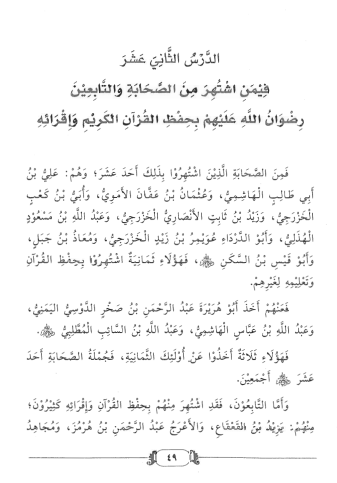 الدَّرْسُ الثَّانِيَ عَشَرَ
فِيْمَنِ اشْتُهِرَ مِنَ الصَّحَابَةِ وَالتَّابِعِيْنَ
رِضْوَانُ اللَّهِ عَلَيْهِمْ بِحِفْظِ القُرْآنِ الكَرِيْمِ وَإِقْرَائِهِ
فَمِنَ الصَّحَابَةِ الَّذِيْنَ اشْتُهِرُوْا بِذَلِكَ أَحَدَ عَشَرَ؛ وَهُمْ: عَلِيُّ بْنُ
أَبِي طَالِبٍ الْهَاشِمِيُّ، وَعُثْمَانُ بْنُ عَفَّانَ الأُمَوِيُّ، وَأُبَيُّ بْنُ كَعْبٍ
الْخَزْرَجِيُّ، وَزَيْدُ بْنُ ثَابِتٍ الأَنْصَارِيُّ الْخَزْرَجِيُّ، وَعَبْدُ اللَّهِ بْنُ مَسْعُوْدٍ
الْهُذَلِيُّ، وَأَبُو الدَّرْدَاءِ عُوَيْمِرُ بْنُ زَيْدٍ الْخَزْرَجِيُّ، وَمُعَاذُ بْنُ جَبَلٍ،
وَأَبُو قَيْسِ بْنُ السَّكَنِ ﷺ، فَهَؤُلَاءِ ثَمَانِيَةٌ اشْتُهِرُوْا بِحِفْظِ الْقُرْآنِ
وَتَعْلِيْمِهِ لِغَيْرِهِمْ.
فَعَنْهُمْ أَخَذَ أَبُو هُرَيْرَةَ عَبْدُ الرَّحْمَنِ بْنُ صَخْرٍ الدَّوْسِيُّ الْيَمَنِيُّ،
وَعَبْدُ اللَّهِ بْنُ عَبَّاسٍ الْهَاشِمِيُّ، وَعَبْدُ اللَّهِ بْنُ السَّائِبِ الْمُطَّلِبِيُّ.
فَهَؤُلَاءِ ثَلَاثَةٌ أَخَذُوْا عَنْ أُوْلَئِكَ الثَّمَانِيَةِ، فَجُمْلَةُ الصَّحَابَةِ أَحَدَ
عَشَرَ أَجْمَعِيْنَ.
وَأَمَّا التَّابِعُوْنَ، فَقَدِ اشْتُهِرَ مِنْهُمْ بِحِفْظِ الْقُرْآنِ وَإِقْرَائِهِ كَثِيْرُوْنَ؛
مِنْهُمْ: يَزِيْدُ بْنُ القَعْقَاعِ، وَالأَعْرَجُ عَبْدُ الرَّحْمَنِ بْنُ هُرْمُزَ، وَمُجَاهِدُ
٤٩